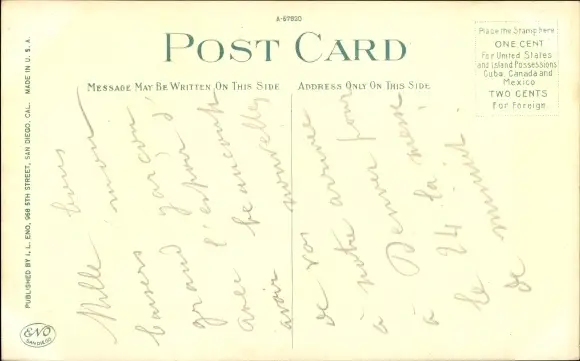 A-67920
POST CARD
MESSAGE MAY BE WRITTEN ON THIS SIDE
ADDRESS ONLY ON THIS SIDE
Place the Stamp here
ONE CENT
For United States
and Island Possessions
Cuba, Canada and
Mexico
TWO CENTS
For Foreign.
PUBLISHED BY I. L. ENO, 968 5TH STREET, SAN DIEGO, CAL. MADE IN U. S. A.
ENO
SAN DIEGO
Mille bons
baisers mon
grand garçon
avec l'espoir
avoir beaucoup
de vos nouvelles
à notre arrivée
à Denver pour
à la messe
le 24
de minuit